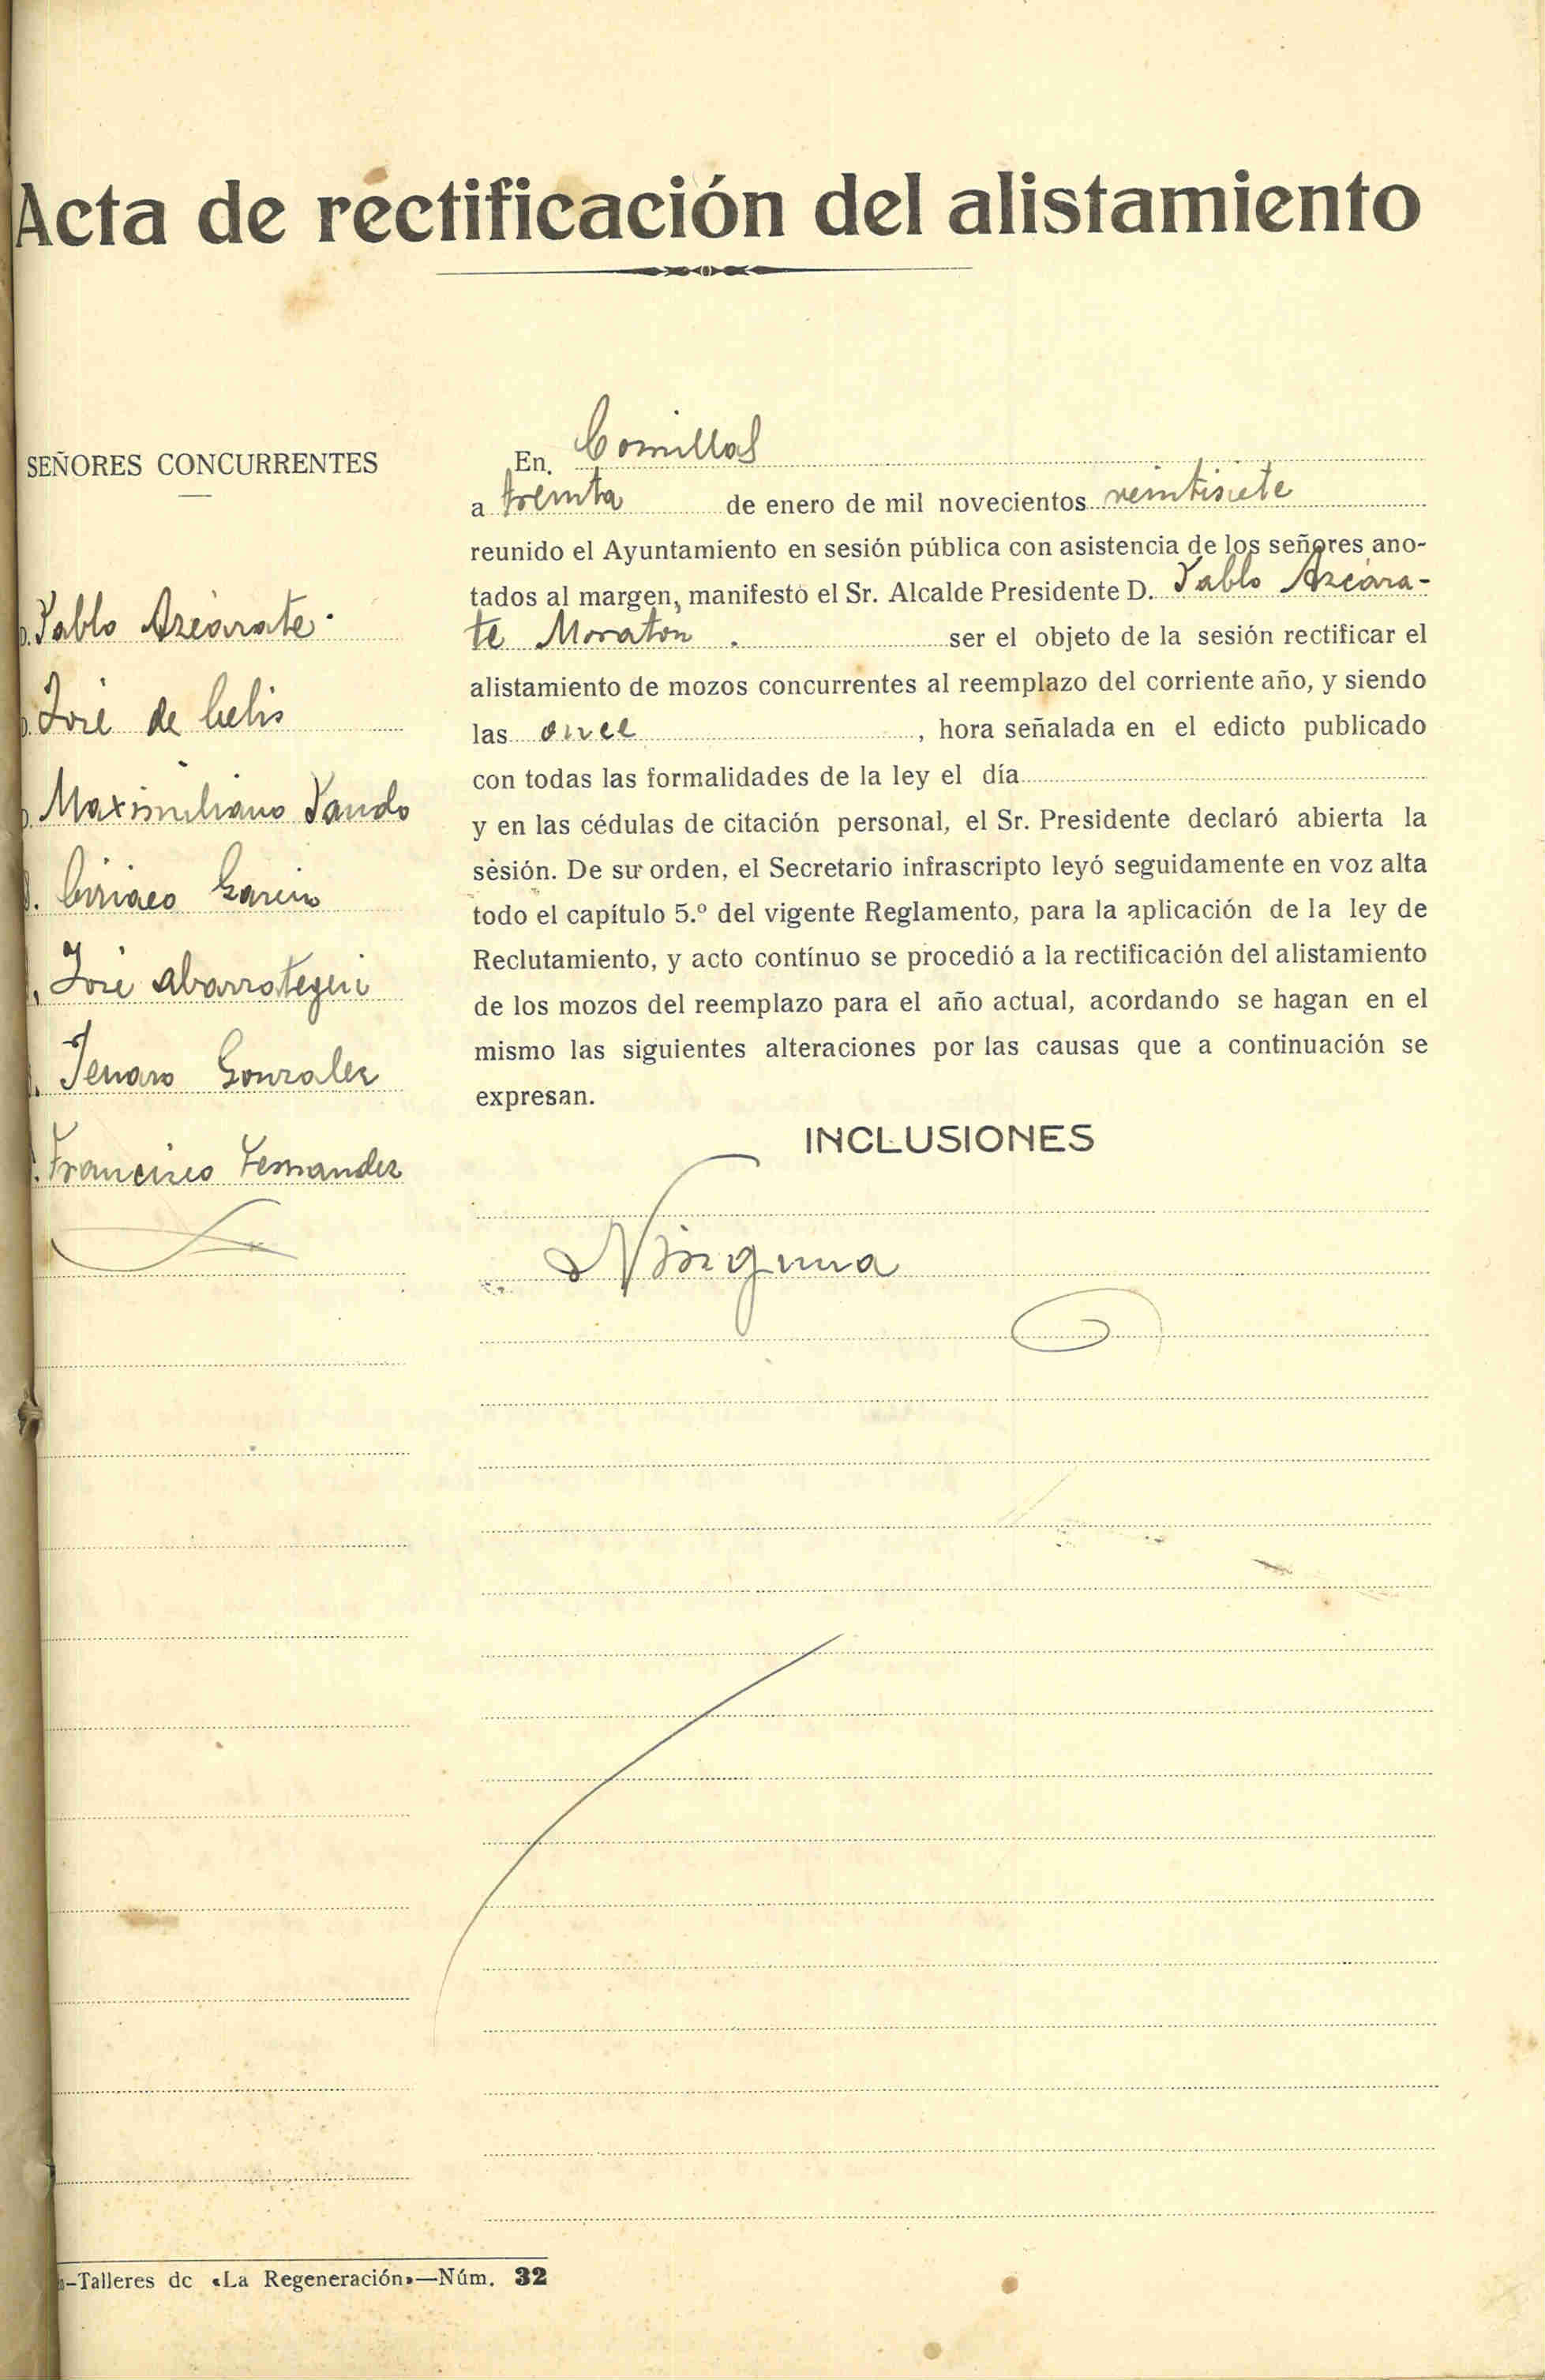 Acta de rectificación del alistamiento
SEÑORES CONCURRENTES
Pablo Azcárate.
José de Celis
Maximiliano Pando
Ciriaco García
José Abarrategui
Jenaro Gonzalez
Francisco Fernandez
En Comillas
a treinta de enero de mil novecientos veintisiete
reunido el Ayuntamiento en sesión pública con asistencia de los señores ano-
tados al margen, manifestó el Sr. Alcalde Presidente D. Pablo Azcára-
te Moraton . ser el objeto de la sesión rectificar el
alistamiento de mozos concurrentes al reemplazo del corriente año, y siendo
las once , hora señalada en el edicto publicado
con todas las formalidades de la ley el día
y en las cédulas de citación personal, el Sr. Presidente declaró abierta la
sesión. De su orden, el Secretario infrascripto leyó seguidamente en voz alta
todo el capítulo 5.º del vigente Reglamento, para la aplicación de la ley de
Reclutamiento, y acto contínuo se procedió a la rectificación del alistamiento
de los mozos del reemplazo para el año actual, acordando se hagan en el
mismo las siguientes alteraciones por las causas que a continuación se
expresan.
INCLUSIONES
Ninguna
–Talleres de «La Regeneración»—Núm. 32